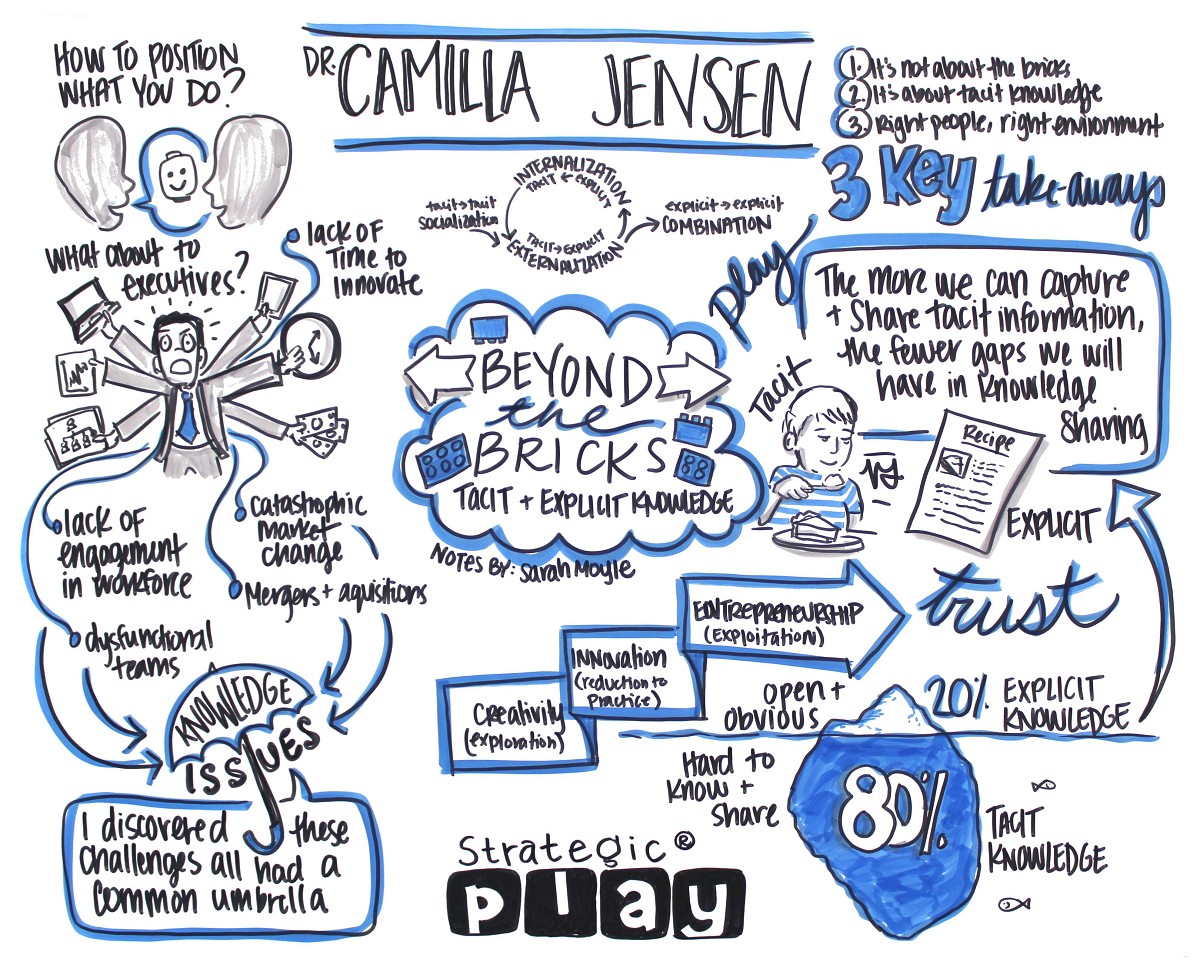 HOW TO POSITION
WHAT YOU DO?
DR. CAMILLA JENSEN
1. It's not about the bricks
2. It's about tacit knowledge
3. Right people, right environment
3 Key take-aways
INTERNALIZATION
TACIT ← EXPLICIT
tacit → tacit
SOCIALIZATION
explicit → explicit
COMBINATION
TACIT → EXPLICIT
EXTERNALIZATION
What about to
executives?
lack of
Time to
Innovate
lack of
engagement
in workforce
dysfunctional
teams
catastrophic
market
change
Mergers + aquisitions
KNOWLEDGE
ISSUES
I discovered these
challenges all had a
common umbrella
BEYOND
the
BRICKS
TACIT + EXPLICIT KNOWLEDGE
NOTES BY: Sarah Moyle
play
The more we can capture
+ share tacit information,
the fewer gaps we will
have in knowledge
sharing
Tacit
vs
Recipe
EXPLICIT
trust
Creativity
(exploration)
Innovation
(reduction to
Practice)
ENTREPRENEURSHIP
(Exploitation)
open +
obvious
20% EXPLICIT
KNOWLEDGE
Hard to
know +
share
80%
TACIT
KNOWLEDGE
Strategic®
play